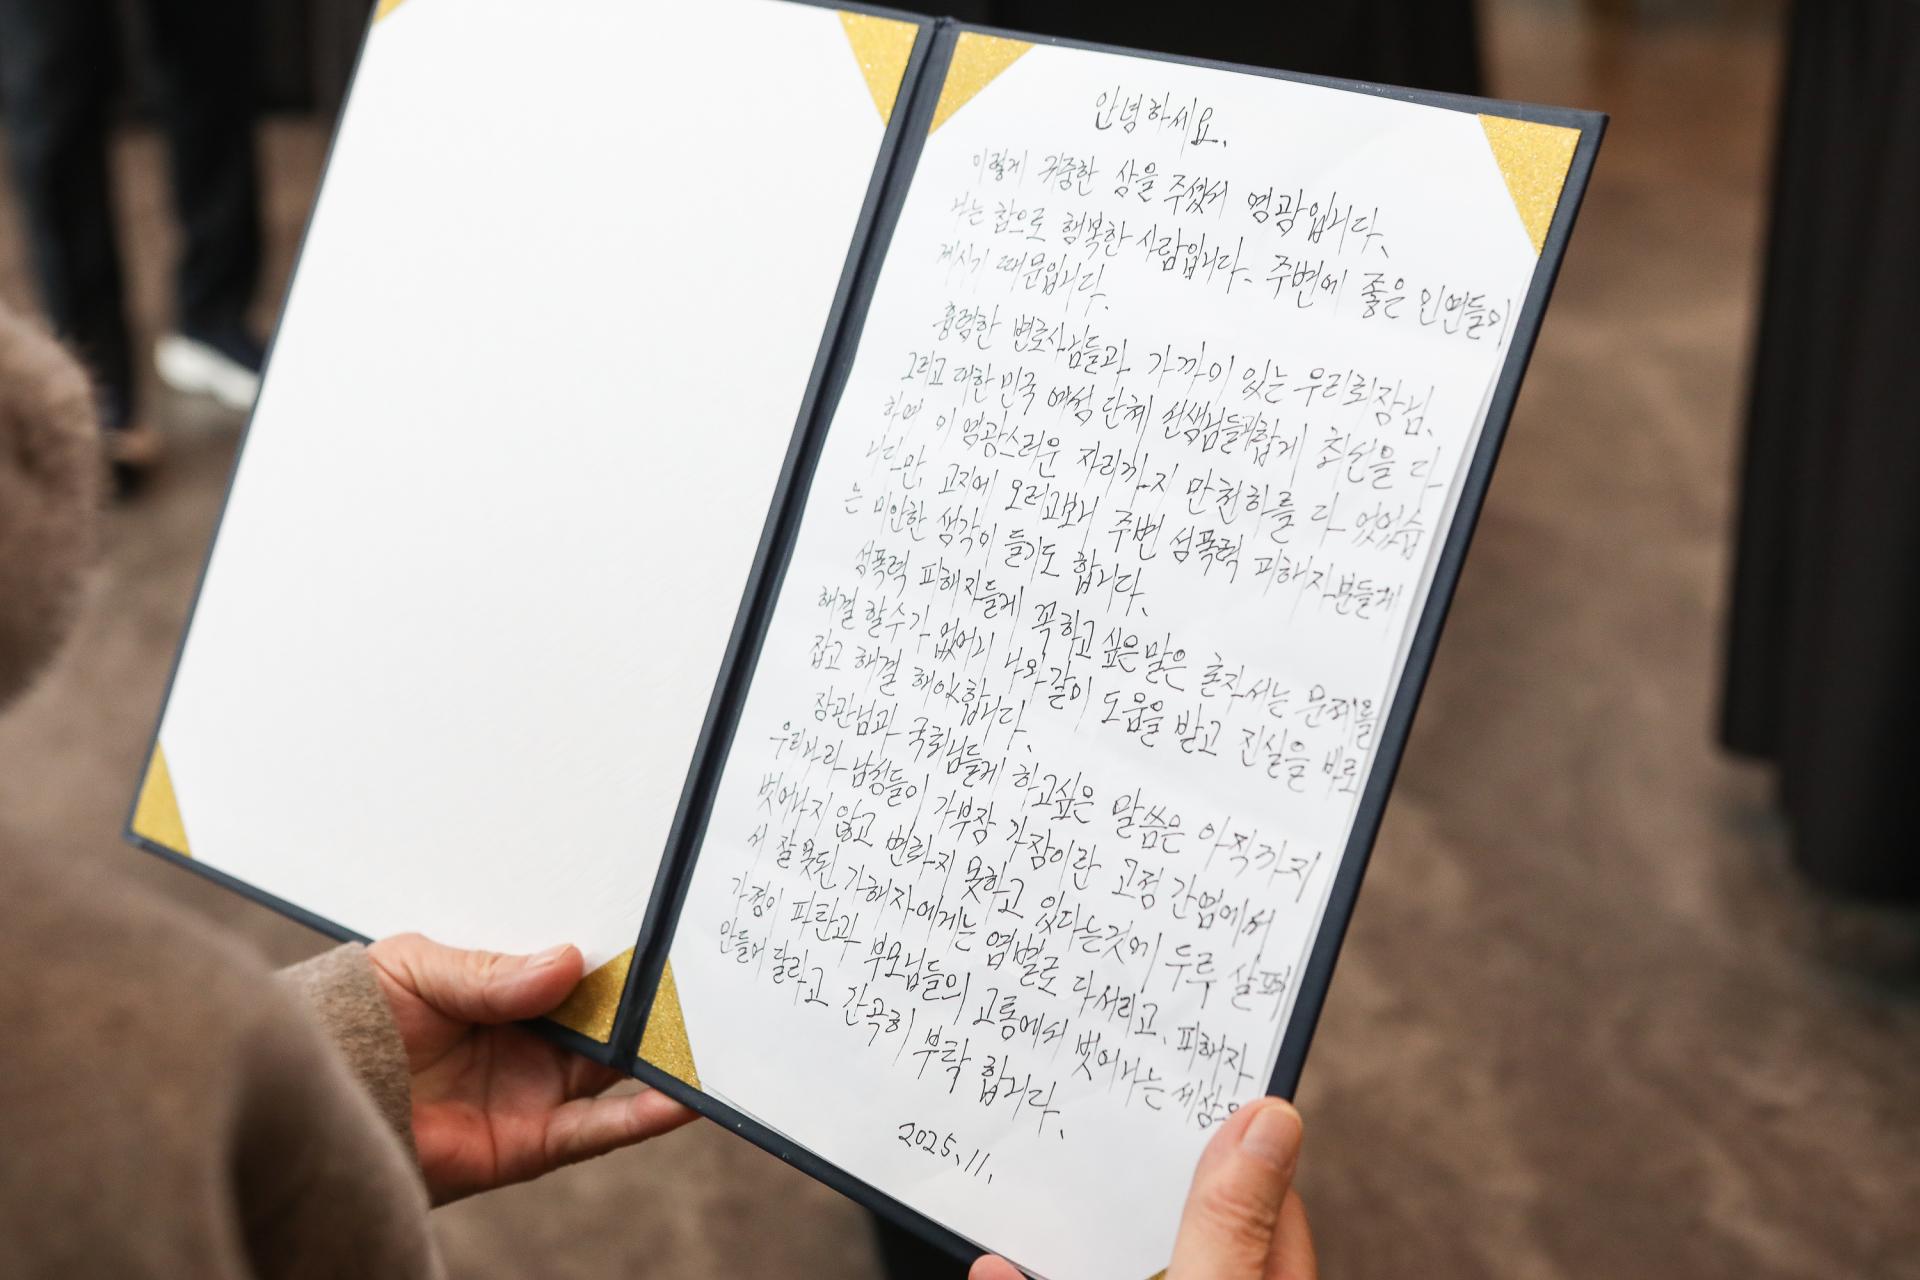 안녕하세요.
이렇게 귀중한 상을 주셨서 영광입니다.
나는 참으로 행복한 사람입니다. 주변에 좋은 인연들이
계시기 때문입니다.
훌렴한 변호사님들과 가까이 있는 우리회장님.
그리고 대한민국 여성단체 선생님들과함게 최선을 다
하여 이 영광스러운 자리까지 만천하를 다 얻었습
니다만, 고지에 오러고보니 주변 성폭력 피해자분들게
는 미안한 생각이 들기도 합니다.
성폭력 피해자들게 꼭하고 싶은말은 혼자서는 문제를
해결 할수가 없어니 나와같이 도움을 받고 진실을 바로
잡고 해결 해야합니다.
장관님과 국회님들게 하고싶은 말씀은 아직까지
우리나라 남성들이 가부장 가장이란 고정 간염에서
벗어나지 않고 변하지 못하고 있다는것에 두루 살펴
서 잘못된 가해자에게는 엄벌로 다서리고, 피해자
가정이 파탄과 부모님들의 고통에서 벗어나는 세상을
안들어 달라고 간곡히 부탁 합니다.
2025.11.